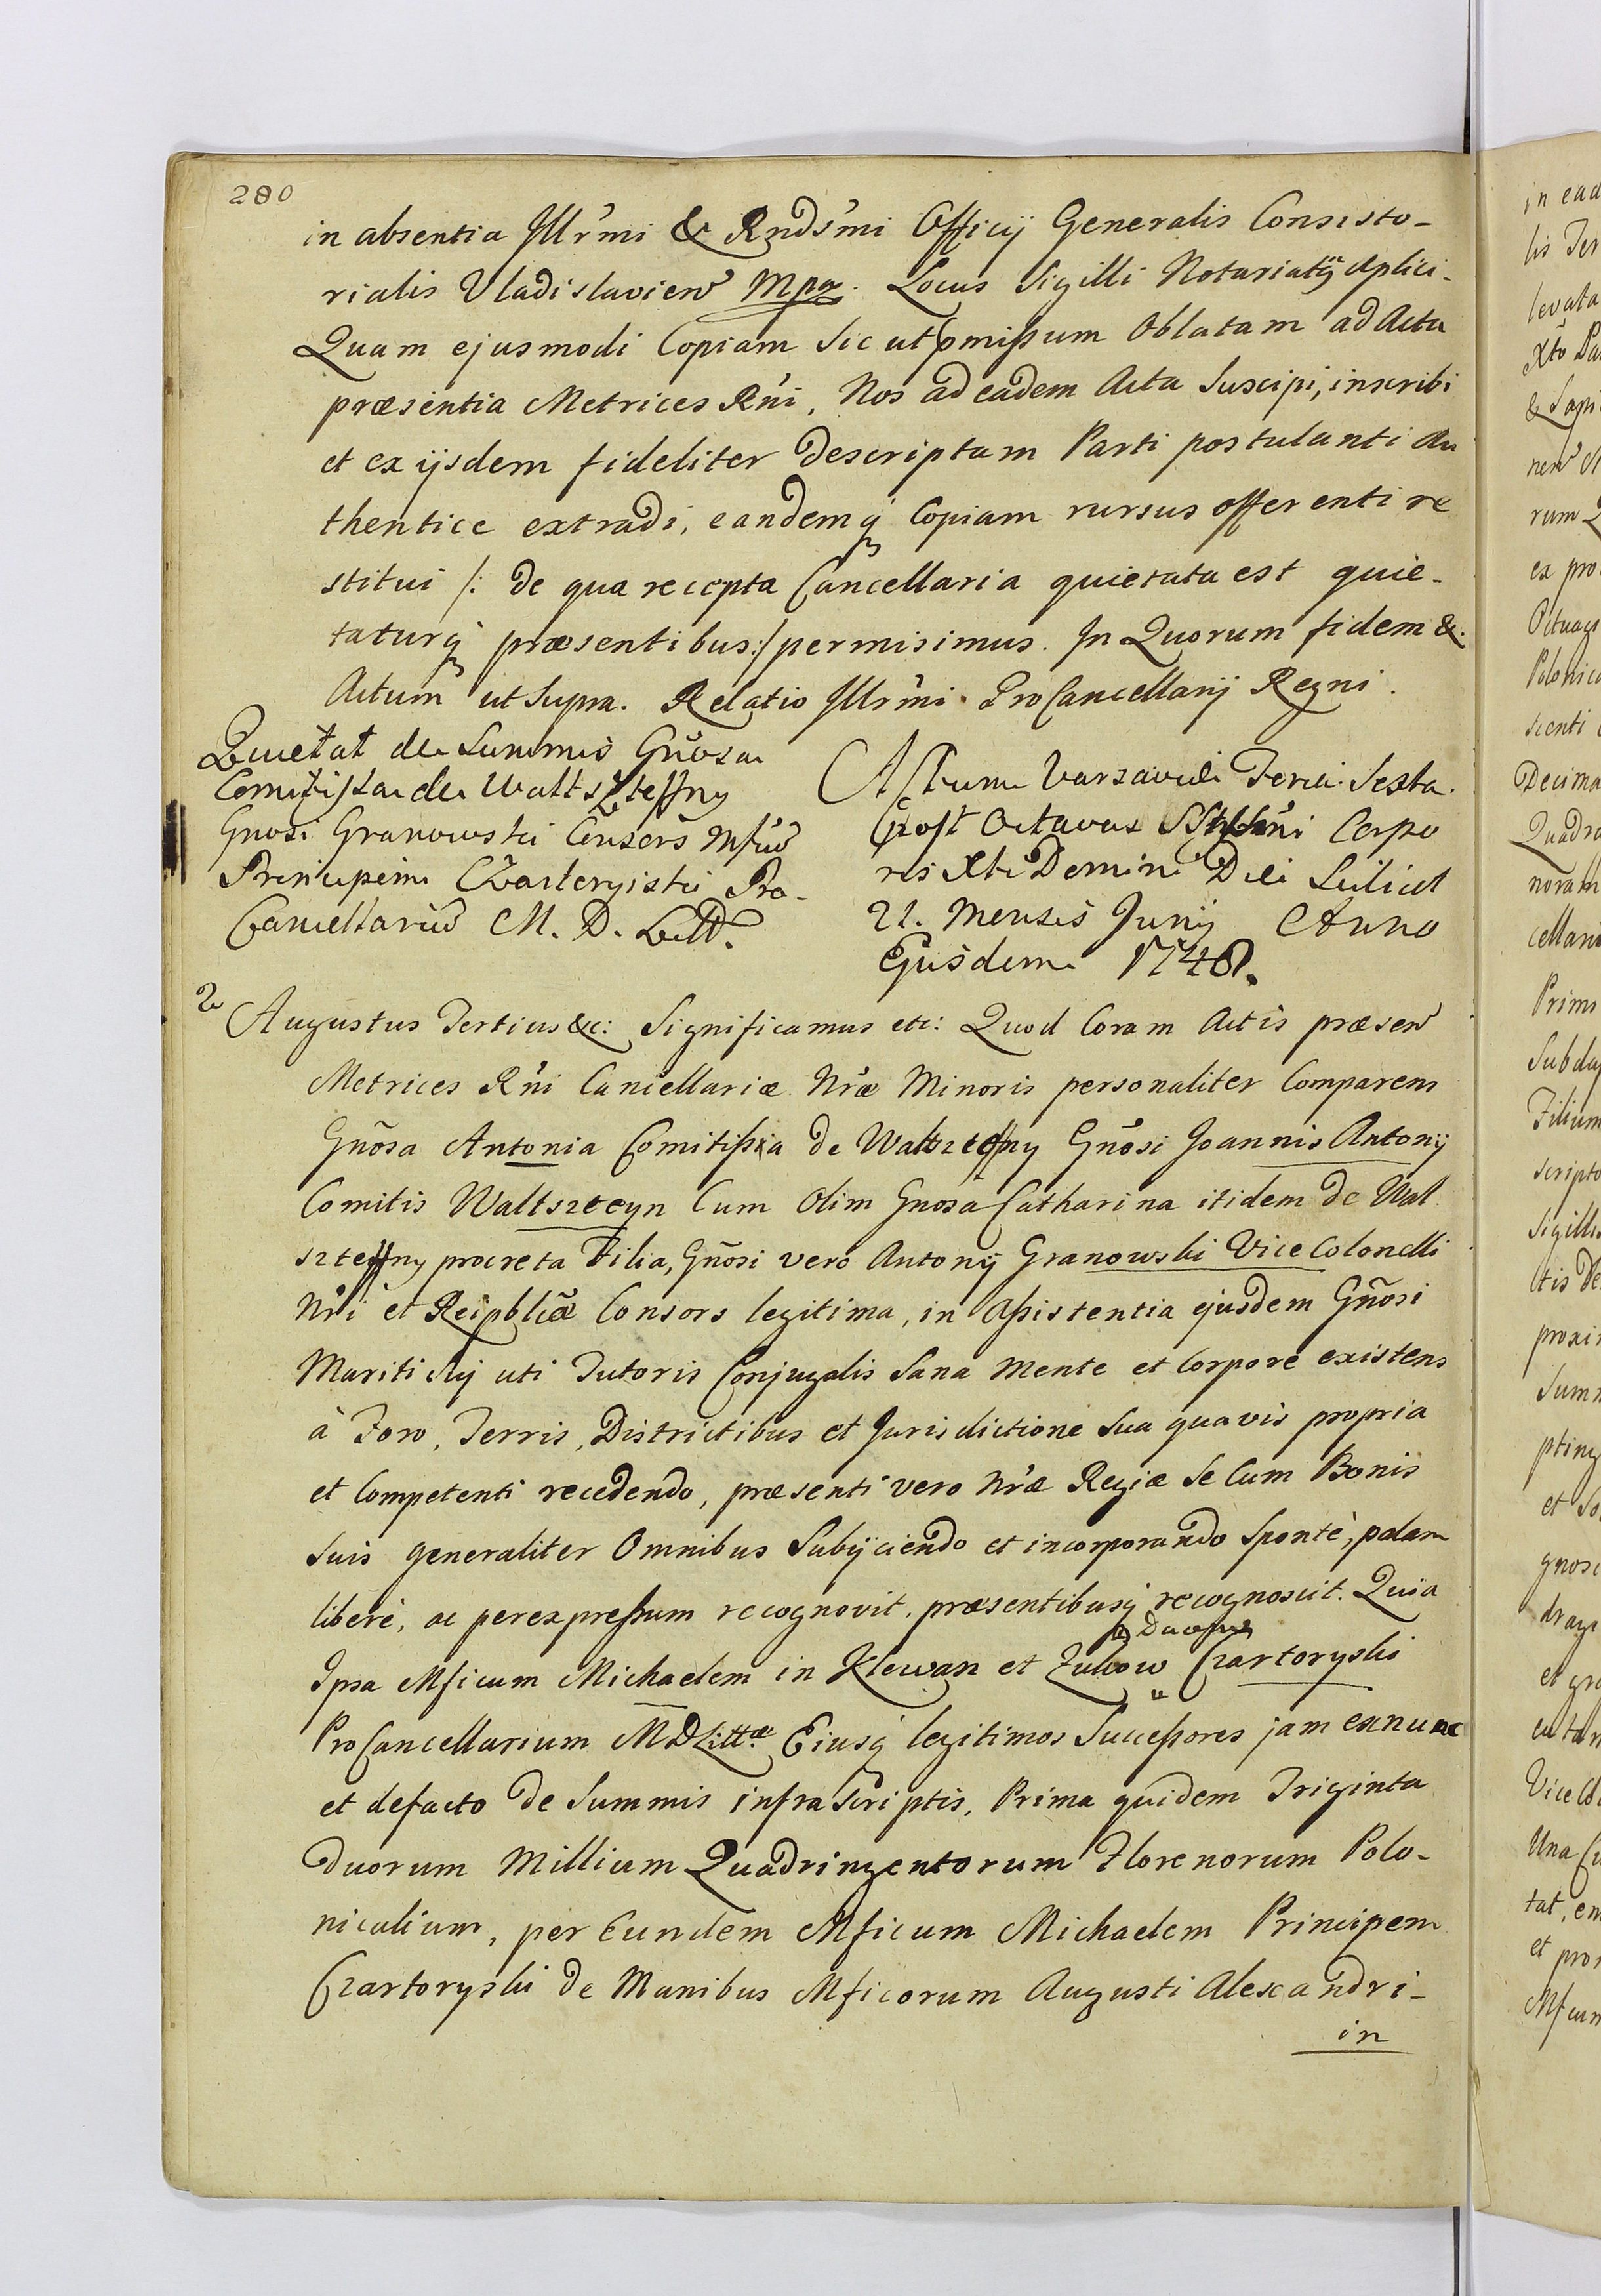 280
in absentia Illr̃mi & Rnds̃mi Officij Generalis Consisto-
rialis Vladislavien̄ Mpa. Locus Sigilli Notariatq̃ Aplici-
Quam ejusmodi Copiam Sic ut pmißum Oblatam ad Acta
præsentia Metrices Rñi, Nos ad eadem Acta Suscipi, inscribi
et ex ijsdem fideliter descriptam Parti postulanti Au
thentice extradi, eandemq̃ Copiam rursus offerenti re
stitui /: de qua recepta Cancellaria quietata est quie-
taturq̃ præsentibus :/ permisimus. In Quorum fidem &.
Actum ut Supra. Relatio Illr̃mi ProCancellarij Regni.
Quietat de Summis Gñosa
Comitißa de Waltszteffny
Gnosi Granowski Consors Mficũ
Principem Czartoryiski Pro-
Cancellariũ M. D. Litt.
Actum Varsaviæ Feria Sexta
Post Octavas SStissimi Corpo
ris Xti Domini Die Scilicet
21. Mensis Junij Anno
Ejusdem 1748.
2 Augustus Tertius &c: Significamus etc: Quod Coram Actis præsen̄
Metrices Rñi Cancellariæ Nr̃æ Minoris personaliter Comparens
Gñosa Antonia Comitißa de Waltszteffny Gñosi Joannis Antonij
Comitis Waltszteyn Cum Olim Gnosa Catharina itidem de Wal
szteffny procreta Filia, Gñosi vero Antonij Granowski Vice Colonelli
Nr̃i et Reipblicæ Consors legitima, in Aßistentia ejusdem Gñosi
Mariti Sij uti Tutoris Conjugalis Sana Mente et Corpore existens
à Foro, Terris, Districtibus et Jurisdictione Sua quavis propria
et Competenti recedendo, præsenti vero Nr̃æ Regiæ Se Cum Bonis
Suis generaliter Omnibus Subijciendo et incorporando Spontè, palam
liberè, ac per expreßum recognovit, præsentibusq̃ recognoscit. Quia
Ducem
Ipsa Mficum Michaelem in Klewan et Zukow Czartoryski
ProCancellarium MDLittæ Eiusq̃ legitimos Succeßores jam exnunc
et defacto de Summis infra Scriptis, Prima quidem Triginta
duorum Millium Quadringentorum Florenorum Polo-
nicalium, per Eundem Mficum Michaelem Principem
Czartoryski de Manibus Mficorum Augusti Alexandri-
in
in ead
lis Ter
levata
Xto Pa
rum Q
ex pro
Polonica
scenti
Decima
Quadra
cellari
Primi
Filium
scripto
Sigilli
tis De
proxi
Sum
et So
gnosc
Vice Co
Una Cu
tat, en
et pro
Mficum